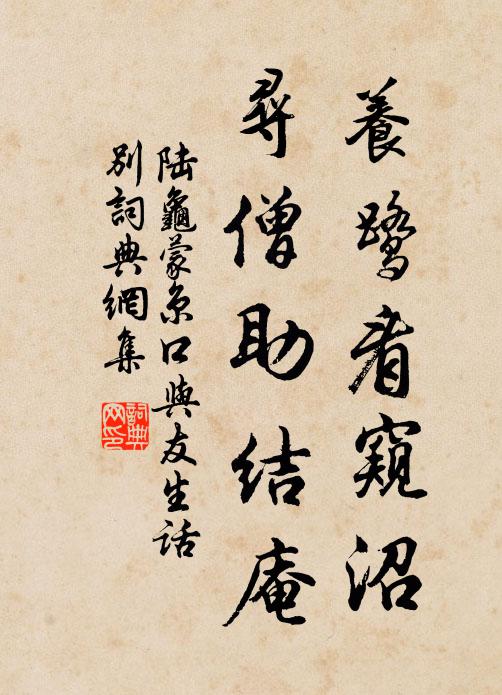 養鷺看窺沼
尋僧助結庵
陸龜蒙京口與友生話
別詞典網集
詞典
网印